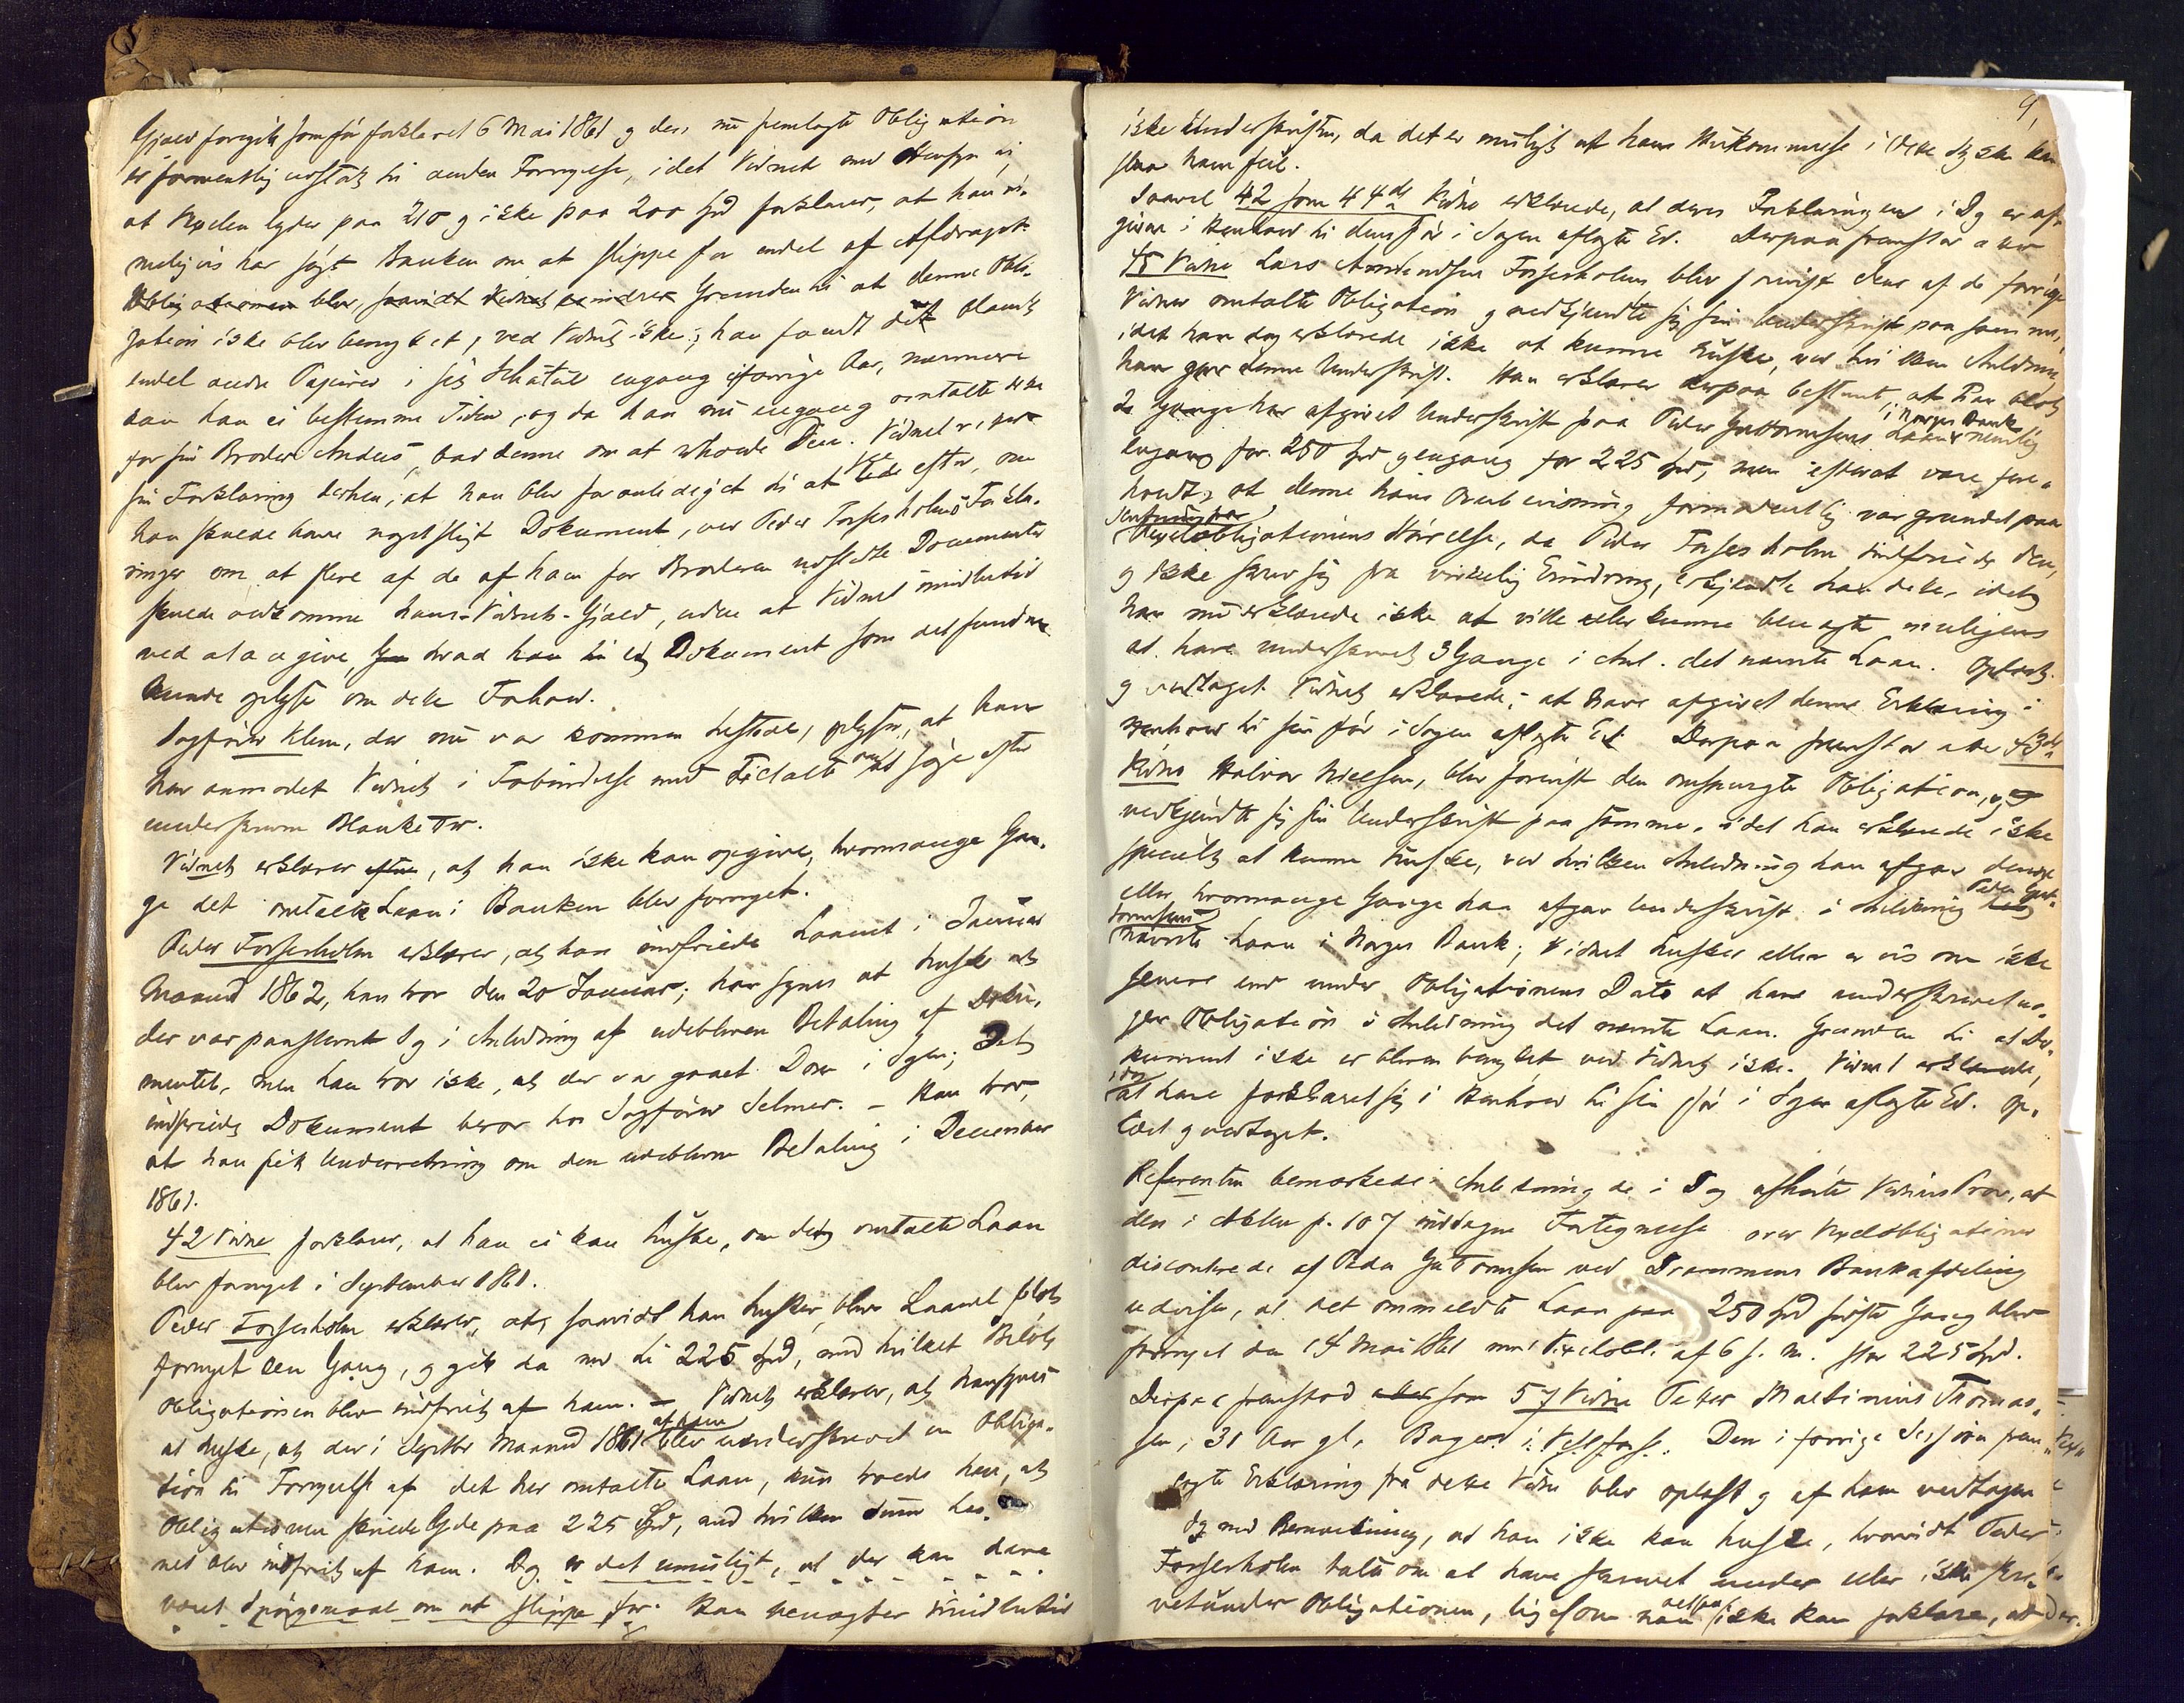 Gjæld foregik som før forklaret 6 Mai 1861 og den nu fremlagte Obligation
er formentlig udstæt til anden Fornyelse, idet Vidnet med Hensyn til
at Vexelen lyder paa 210 og ikke paa 200 Spd forklarer, at han
muligvis har søgt Banken om at slippe for endel af Afdraget.
Obligationen blev, saavidt Vidnet erindrer Grunden til at denne Obli-
gation ikke blev benyttet, ved Vidnet ikke; han fandt det blandt
endel andre Papirer i sig Schatul engang iforrige Aar, nærmere
kan han ei bestemme Tiden, og da han nu engang omtalte dette
for sin Broder Anders, bad denne om at erholde Den. Vidnet
sin Forklaring derhen, at han blev foranlediget til at lede efter, om
han skulde have noget sligt Dokument, ved Peder Forsesholms Forkla-
ringer om at flere af de af ham for Broderen udstedte Documenter
skulde vedkomme hans - Vidnets - Gjæld, uden at Vidnet imidlertid
ved at angive, hvad han til et Dokument som det fundne
kunde oplyse om dette Forhold.
Sagfører Klem, der nu var kommen tilstede, oplyste, at han
har anmodet Vidnet i Forbindelse med Fidtalte om at søge efter
underskrevne Blanketter.
Vidnet erklærer, at han ikke kan opgive, hvormange Gan-
ge det omtalte Laan i Banken blev fornyet.
Peder Forsesholm erklærer, at han indfriede Laanet i Januar
Maaned 1862, han tror den 20 Januar; han synes at huske at
der var paastevnt Sag i Anledning af udebleven Betaling af Doku-
mentet, men han tror ikke, at der var gaaet Dom i Sagen; Det
indfriede Dokument beror hos Sagfører Selmer. - Han tror,
at han fik Underretning om den udeblevne Betaling i December
1861.
42 Vidne forklarer, at han ei kan huske, om det omtalte Laan
blev fornyet i September 1861.
Peder Forsesholm erklærer, at, saavidt han husker, blev Laanet blot
fornyet een Gang, og gik da ned til 225 Spd, med hvilket Beløb
Obligationen blev indfriet af ham. - Vidnet erklærer, at han synes
at huske, at der i Septbr Maaned 1861 af ham blev underskrevet en Obliga-
tion til Fornyelse af det her omtalte Laan, kun troede han, at
Obligationen skulde lyde paa 225 Spd, med hvilken Sum Laa-
net blev indfriet af ham. Dog er det umuligt, at der kan have
været Spørgsmaal om at slippe for. Han benægter imidlertid
9,
ikke Underskriften, da det er muligt at hans Hukommelse i dette Stykke kan
slaa ham feil.
Saavel 42 som 44de Vidne erklærede, at deres Forklaringer i Dag er af-
givne i Henhold til dens før i Sagen aflagte Ed. Derpaa fremstaar
45 Vidne Lars Amundsen Forsesholm, blev forevist den af de forrige
Vidner omtalte Obligation og vedkjendte sig sin Underskrift paa samme,
idet han dog erklærede ikke at kunne huske, ved hvilken Anledning
han gav denne Underskrift. Han erklærer derpaa bestemt, at han blot
2 Gange har afgivet Underskrift paa Peder Guttormsens Laan i Norges Bank nemlig
engang for 250 Spd og engang for 225 Spd, men efterat være fore-
holdt, at denne hans Overbevisning formodentlig var grundet paa
Vexelobligationens Størrelse, da Peder Forsesholm indfriede den,
og ikke skrev sig fra virkelig Erindring, erkjendte han dette, idet
han nu erklærede ikke at ville eller kunne benægte muligens
at have underskrevet 3 Gange i Anl. det nævnte Laan. Oplæst
og vedtaget. Vidnet erklærede, at have afgivet denne Erklæring i
Henhold til sin før i Sagen aflagte Ed. Derpaa fremstaar atter 43de
Vidne Halvor Nielsen, blev forevist den omspurgte Obligation, og
vedkjendte sig sin Underskrift paa samme, idet han erklærede ikke
specielt at kunne huske, ved hvilken Anledning han afgav denne
eller hvormange Gange han afgav Underskrift i Anledning Peder Gut-
tormsens nævnte Laan i Norges Bank; Vidnet husker eller er vis om ikke
senere end under Obligationens Dato at have underskrevet no-
gen Obligation i Anledning det nævnte Laan. Grunden til at Do-
kument ikke er bleven benyttet ved Vidnet ikke. Vidnet erklærede,
at have forklaret sig i Henhold til sin før i Sagen aflagte Ed. Op-
læst og vedtaget.
Referenten bemærkede i Anledning de i Dag afhørte Vidners Prov, at
den i Akten p. 107 indtagne Fortegnelse over Vexelobligationer
disconterede af Peder Guttormsen ved Drammens Bankafdeling
udviser, at det ommeldte Laan paa 250 Spd første Gang blev
fornyet den 14 Mai 1861 med Vexelobl. af 6 s. M. stor 225 Spd.
Derpaa fremstod 57 Vidne Peter Martinius Thomas-
sen, 31 Aar gl, Bager i Vestfoss. Den i forrige Session frem-
lagte Erklæring fra dette Vidne blev oplæst og af ham vedtagen
dog med Bemærkning, at han ikke kan huske, hvorvidt Peder
Forsesholm talte om at have skrevet under eller ikke skre-
vet under Obligationen, ligesom han ikke kan forklare, at der